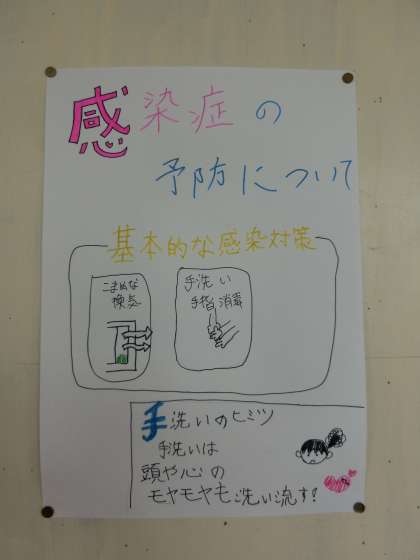 感染症の
予防について
基本的な感染対策
こまめな
換気
手洗い
手指消毒
手洗いのヒミツ
手洗いは
頭や心の
モヤモヤも洗い流す!